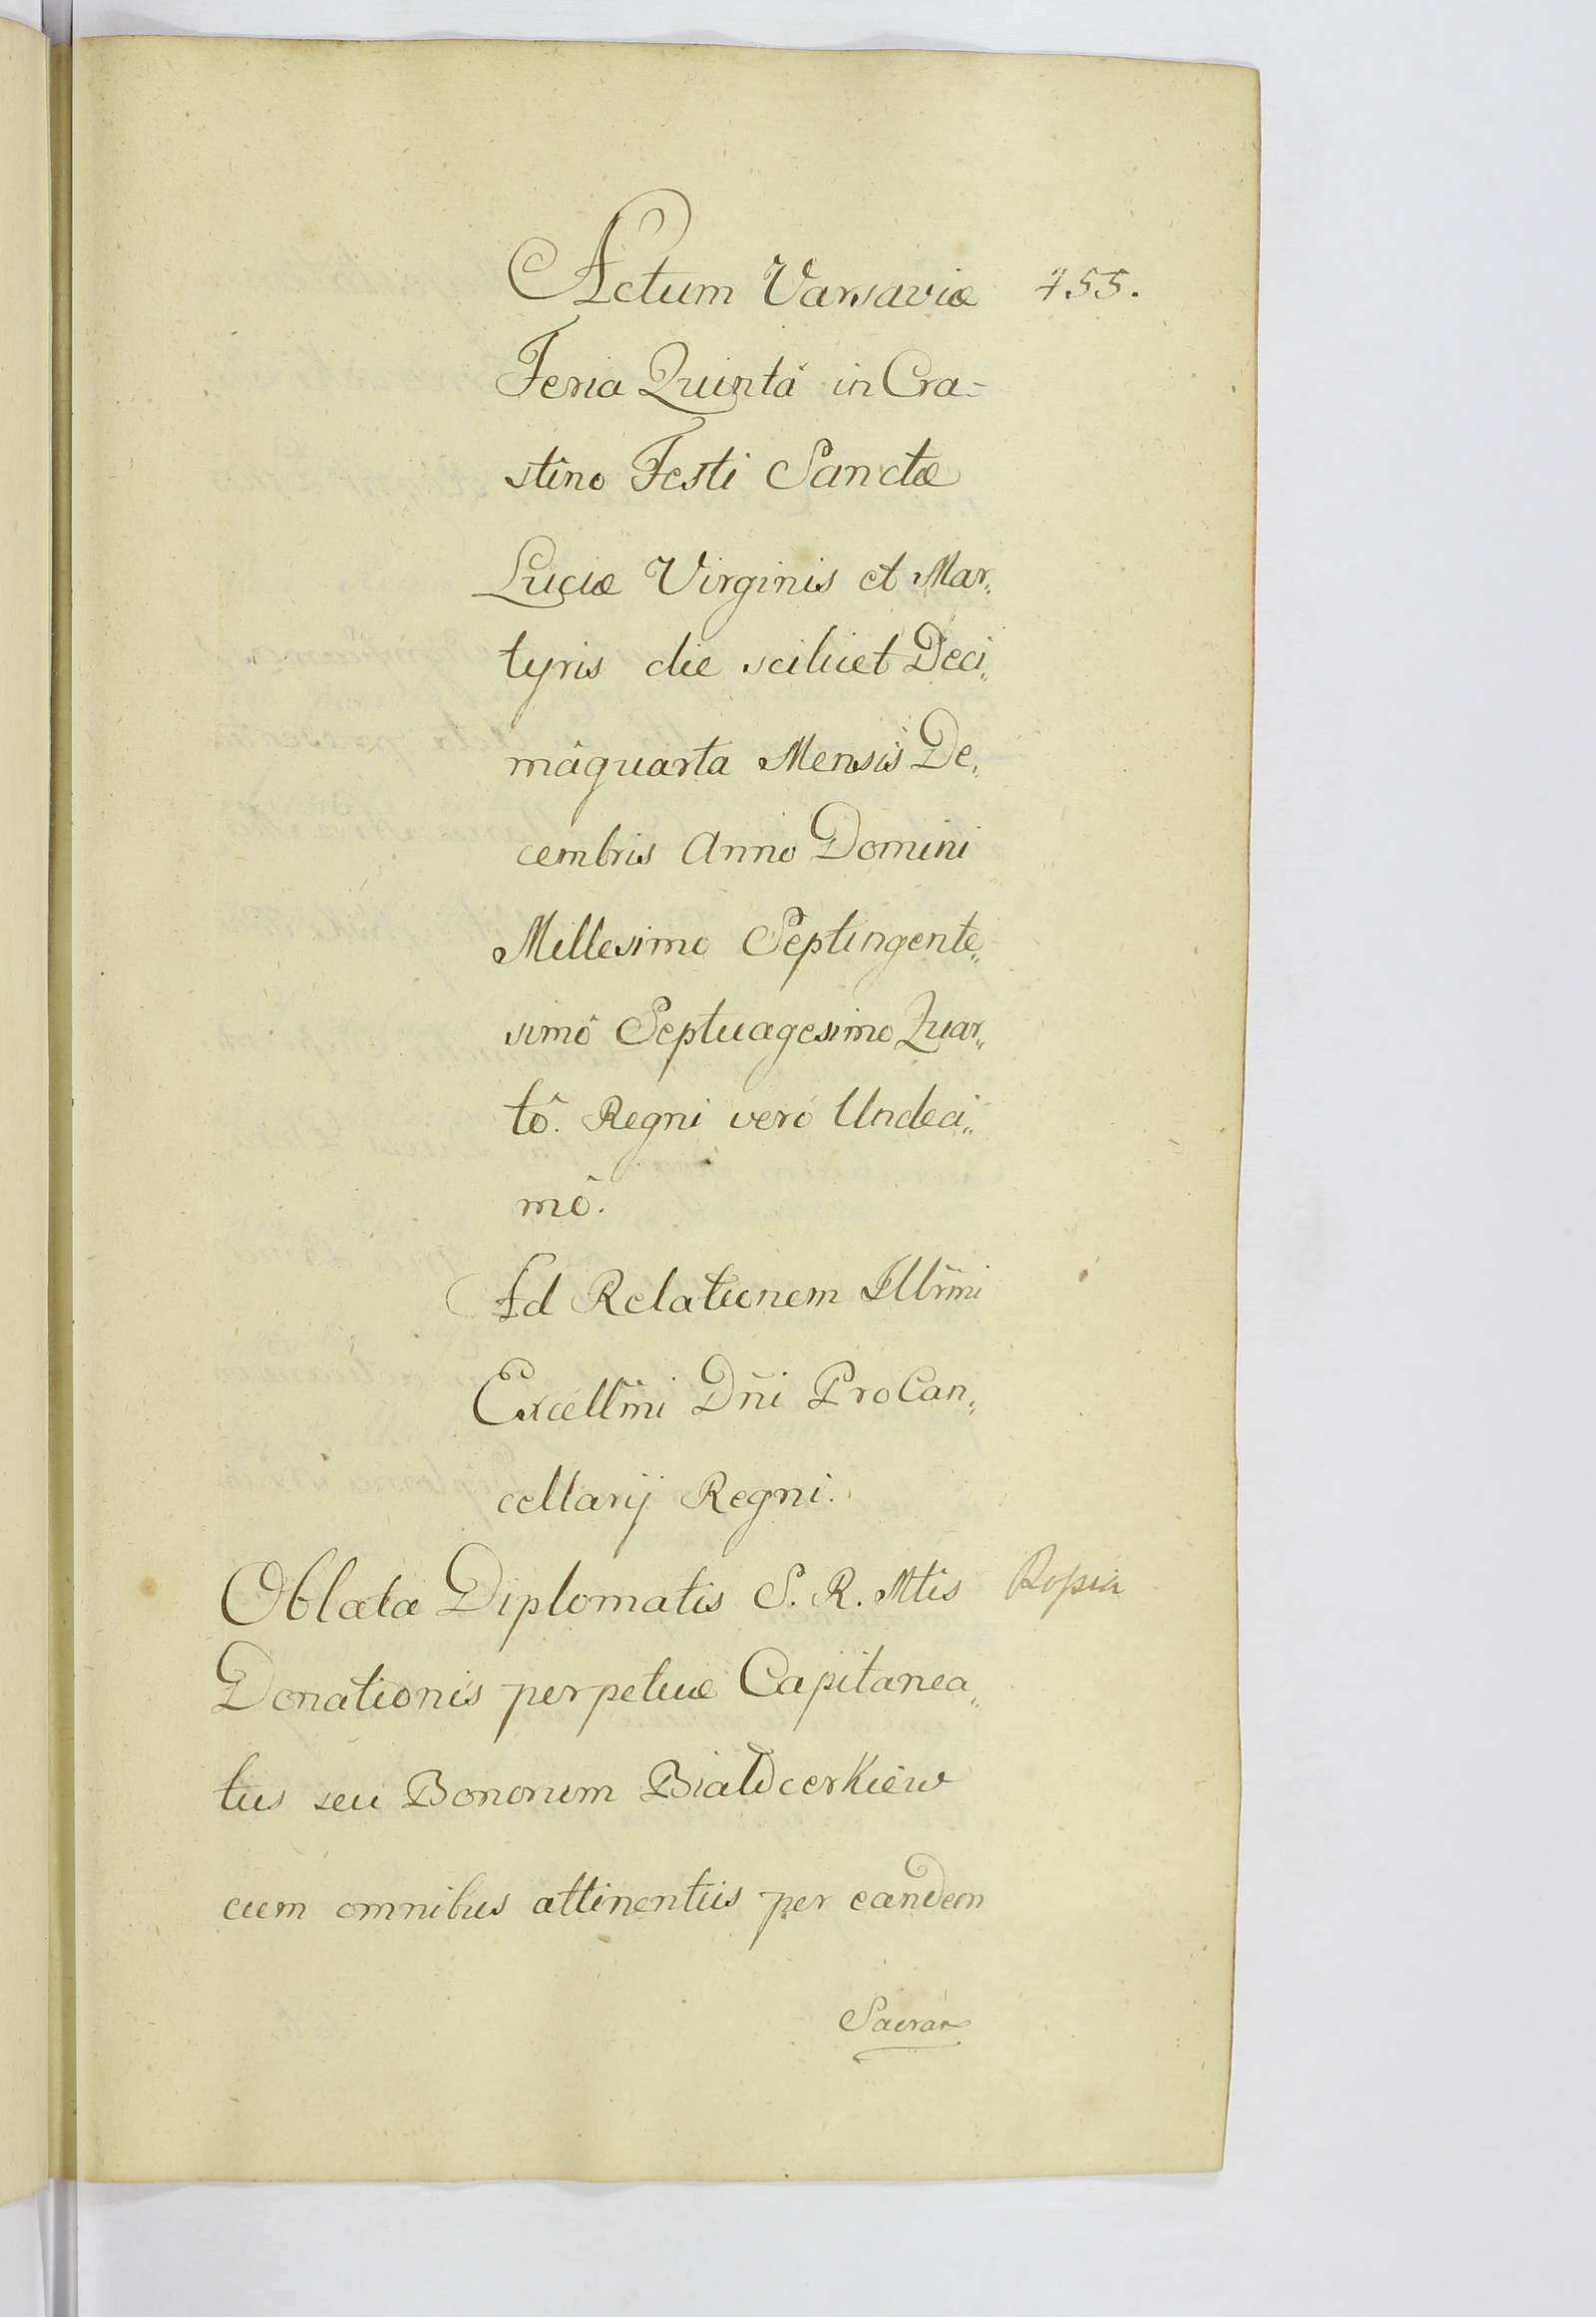 Actum Varsaviæ 455.
Feria Quintâ in Cra=
stino Festi Sanctæ
Luciæ Virginis et Mar„
tyris die scilicet Deci„
mâquarta Mensis De„
cembris Anno Domini
Millesimo Septingente„
simô Septuagesimo Quar„
tô. Regni verô Undeci„
mô.
Ad Relationem Illr̃mi
Excelłmi Dñi ProCan„
cellarij Regni.
Oblata Diplomatis S. R. Mtis
Donationis perpetuæ Capitanea„
tus seu Bonorum Białocerkiew
cum omnibus attinentiis per eandem
Sacram